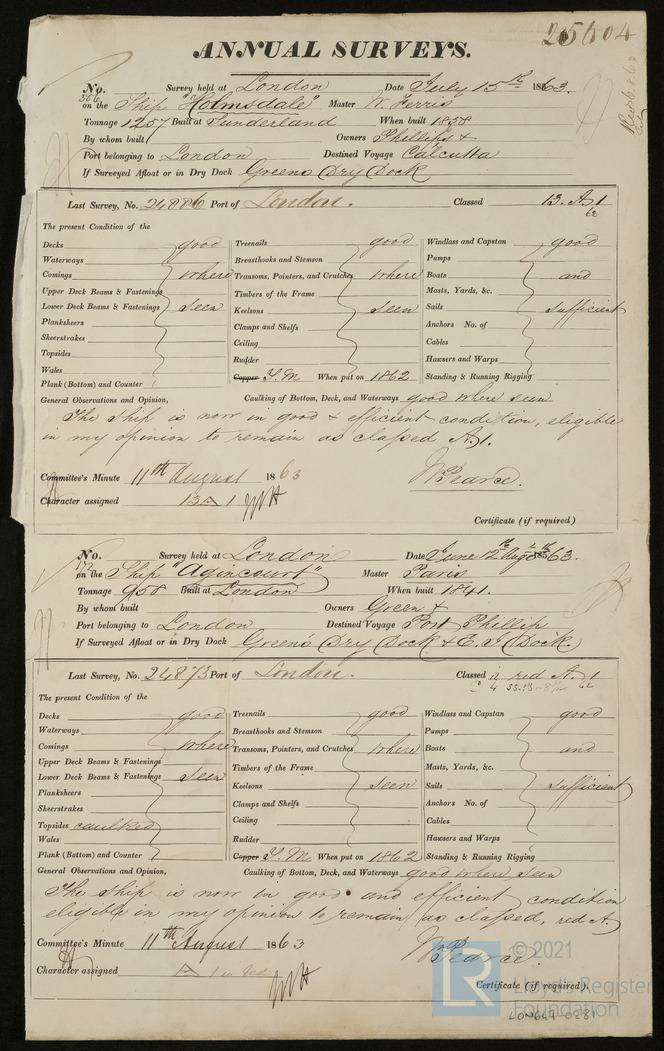 25604
ANNUAL SURVEYS.
No. 306 Survey held at London Date July 15th 1863.
on the Ship "Holmsdale" Master W. Ferris
Tonnage 1257 Built at Sunderland When built 1858
By whom built Owners Phillips &
Port belonging to London Destined Voyage Calcutta
If Surveyed Afloat or in Dry Dock Greens Dry Dock
Last Survey, No. 24886 Port of London. Classed 13. A. 1
62
The present Condition of the
Decks good Treenails good Windlass and Capstan good
Waterways Breasthooks and Stemson Pumps
Comings where Transoms, Pointers, and Crutches where Boats and
Upper Deck Beams & Fastenings Timbers of the Frame Masts, Yards, &c.
Lower Deck Beams & Fastenings seen Keelsons seen Sails sufficient
Planksheers Clamps and Shelfs Anchors No. of
Sheerstrakes Ceiling Cables
Topsides Rudder Hawsers and Warps
Wales Copper Y.M. When put on 1862 Standing & Running Rigging
Plank (Bottom) and Counter
General Observations and Opinion, Caulking of Bottom, Deck, and Waterways good where seen
The ship is now in good & efficient condition, eligible
in my opinion to remain as classed A.1.
Committee's Minute 11th August 1863 W Pearce.
Character assigned 13 A 1
Certificate (if required)
No. 172 Survey held at London Date June 12th Aug 1863.
on the Ship "Agincourt" Master Paris
Tonnage 958 Built at London When built 1841.
By whom built Owners Green &
Port belonging to London Destined Voyage Port Phillip
If Surveyed Afloat or in Dry Dock Green's Dry Dock & E. I Dock.
Last Survey, No. 24873 Port of London. Classed in red A. 1
62
The present Condition of the
Decks good Treenails good Windlass and Capstan good
Waterways Breasthooks and Stemson Pumps
Comings where Transoms, Pointers, and Crutches where Boats and
Upper Deck Beams & Fastenings Timbers of the Frame Masts, Yards, &c.
Lower Deck Beams & Fastenings seen Keelsons seen Sails sufficient
Planksheers Clamps and Shelfs Anchors No. of
Sheerstrakes Ceiling Cables
Topsides caulked Rudder Hawsers and Warps
Wales Copper Y.M. When put on 1862 Standing & Running Rigging
Plank (Bottom) and Counter
General Observations and Opinion, Caulking of Bottom, Deck, and Waterways good where seen
The ship is now in good and efficient condition
eligible in my opinion to remain as classed, red A.
Committee's Minute 11th August 1863 W Pearce.
Character assigned A 1 in red
Certificate (if required).
LR © 2021
Lloyd's Register
Foundation
LON649-0281